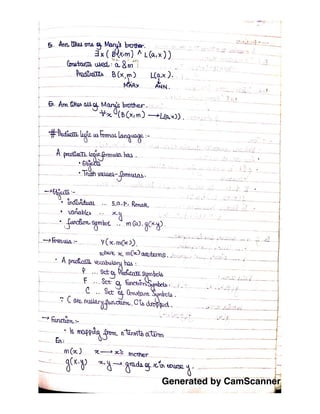 Ex. Ann likes one of Mary's brother.
∃x ( B(x,m) ^ L(a,x) )
Constants used: a & m
Predicates B(x,m) L(a,x).
MARY ANN.
Ex. Ann likes all of Mary's brother.
∀x (B(x,m) → L(a,x)).
# Predicate logic as Formal language :-
A predicate logic formula has
• Objects
• Truth values - formulas.
→ Objects :-
• individual .. S.A.P. Renuk
• variables .. x,y
• function symbol .. m(a), g(x,y)
→ Formula :- Y(x, m(x)).
where x, m(x) are terms.
• A predicate vocabulary has :
P ... Set of Predicate symbols
F ... Set of Function Symbols
C ... Set of Constant Symbols.
∵ C are nullary function, C is dropped.
→ Function :-
• Is mapping from n terms to a term
Ex:
m(x) x → x's mother
g(x,y) x,y → grade of x in course y.
Generated by CamScanner